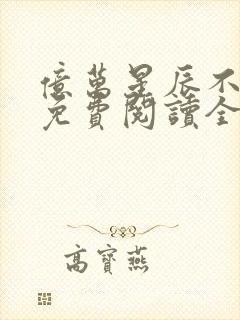 億萬星辰不
免費閱讀全
高寶燕